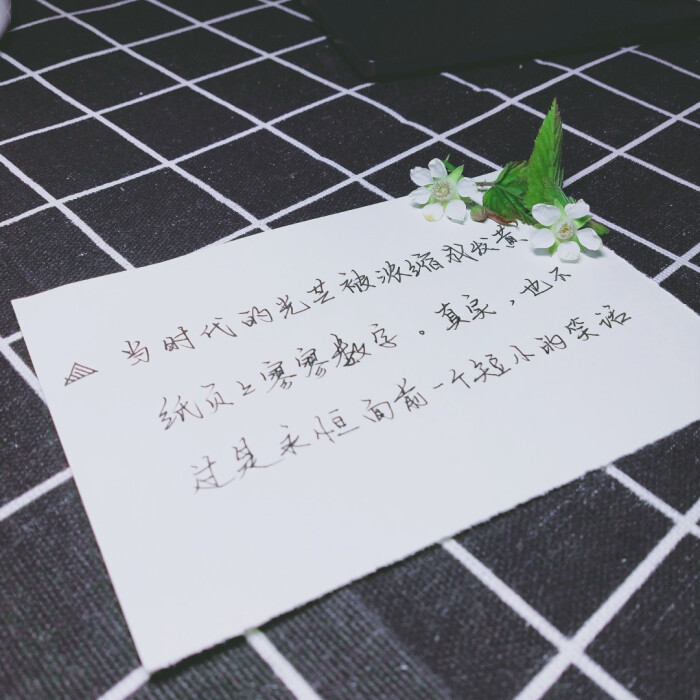 当时代的光芒被浓缩成发黄
纸页上寥寥数字。真实，也不
过是永恒面前一个短小的笑话